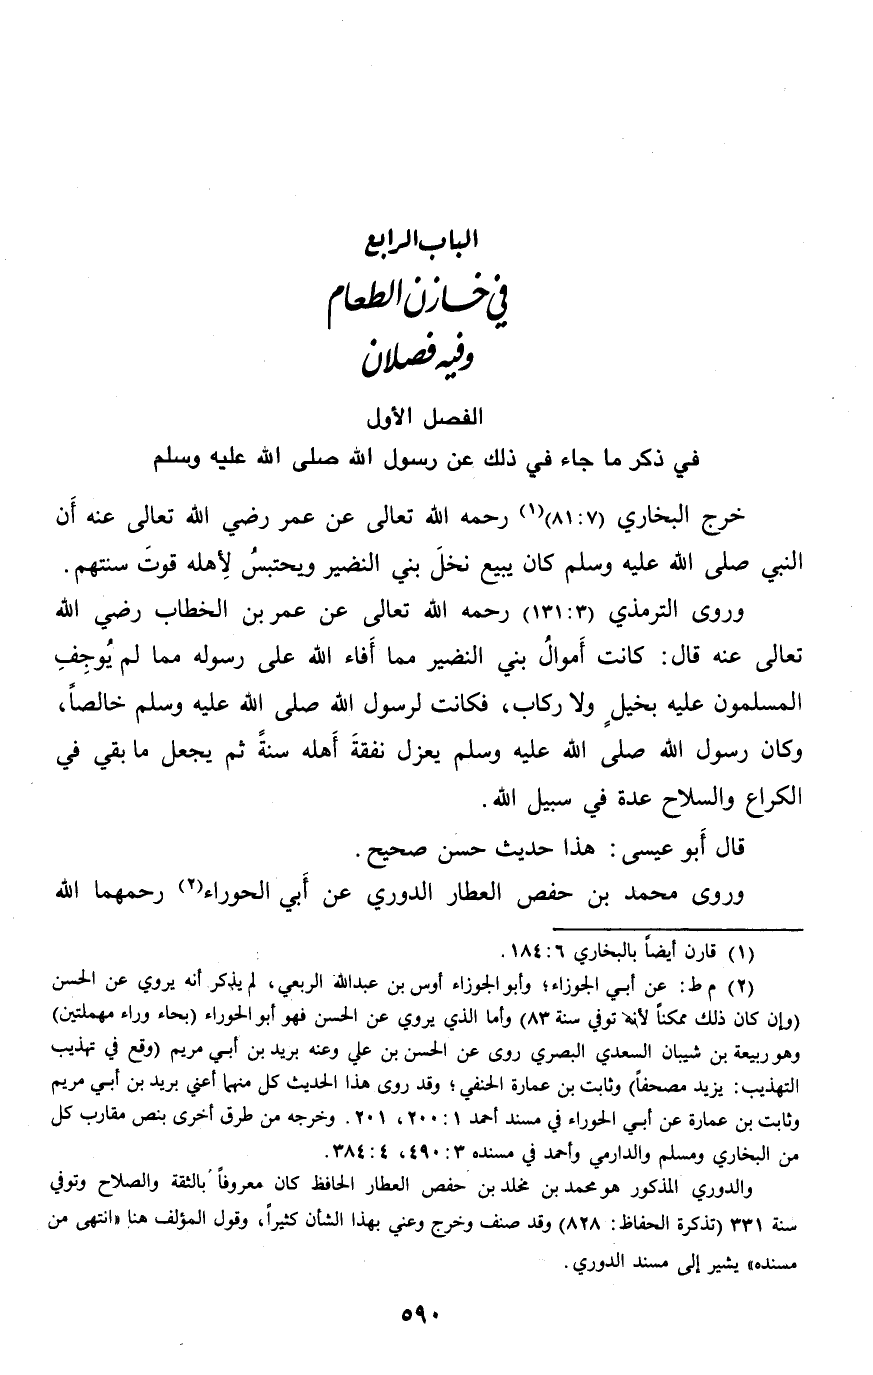 الباب الرابع
في خازن الطعام
وفيه فصلان
الفصل الأول
في ذكر ما جاء في ذلك عن رسول الله صلى الله عليه وسلم
خرج البخاري (٧: ٨١)(١) رحمه الله تعالى عن عمر رضي الله تعالى عنه أَن
النبي صلى الله عليه وسلم كان يبيع نخلَ بني النضير ويحتبسُ لِأهله قوتَ سنتهم.
وروى الترمذي (٣: ١٣١) رحمه الله تعالى عن عمر بن الخطاب رضي الله
تعالى عنه قال: كانت أَموالُ بني النضير مما أَفاء الله على رسوله مما لم يُوجِفِ
المسلمون عليه بخيلٍ ولا ركاب، فكانت لرسول الله صلى الله عليه وسلم خالصاً،
وكان رسول الله صلى الله عليه وسلم يعزل نفقةَ أَهله سنةً ثم يجعل ما بقي في
الكراع والسلاح عدة في سبيل الله.
قال أَبو عيسى: هذا حديث حسن صحيح.
وروى محمد بن حفص العطار الدوري عن أَبي الحوراء(٢) رحمهما الله
(١) قارن أيضاً بالبخاري ٦: ١٨٤.
(٢) م ط: عن أبي الجوزاء؛ وأبو الجوزاء أوس بن عبدالله الربعي، لم يذكر أنه يروي عن الحسن
(وإن كان ذلك ممكناً لأنه توفي سنة ٨٣) وأما الذي يروي عن الحسن فهو أبو الحوراء (بحاء وراء مهملتين)
وهو ربيعة بن شيبان السعدي البصري روى عن الحسن بن علي وعنه بريد بن أبي مريم (وقع في تهذيب
التهذيب: يزيد مصحفاً) وثابت بن عمارة الحنفي؛ وقد روى هذا الحديث كل منهما أعني بريد بن أبي مريم
وثابت بن عمارة عن أبي الحوراء في مسند أحمد ١: ٢٠٠، ٢٠١. وخرجه من طرق أخرى بنص مقارب كل
من البخاري ومسلم والدارمي وأحمد في مسنده ٣: ٤٩٠، ٤: ٣٨٤.
والدوري المذكور هو محمد بن مخلد بن حفص العطار الحافظ كان معروفاً بالثقة والصلاح وتوفي
سنة ٣٣١ (تذكرة الحفاظ: ٨٢٨) وقد صنف وخرج وعني بهذا الشأن كثيراً، وقول المؤلف هنا «انتهى من
مسنده» يشير إلى مسند الدوري.
٥٩٠